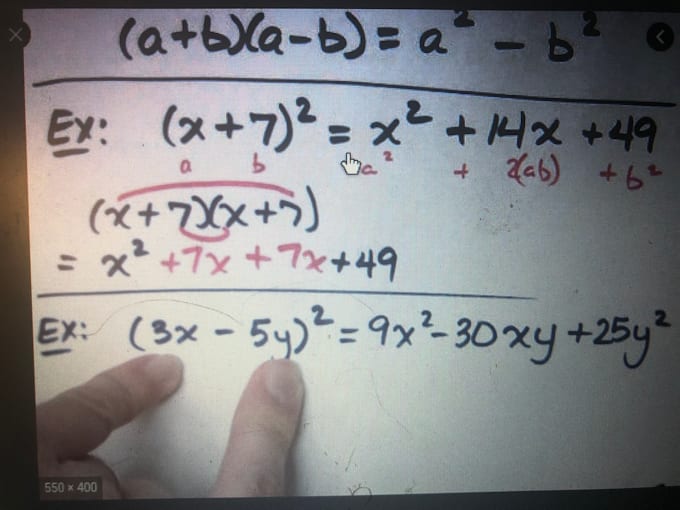 (a+b)(a-b) = a² - b²
Ex: (x+7)² = x² + 14x + 49
a b a² + 2(ab) + b²
(x+7)(x+7)
= x² +7x +7x+49
Ex: (3x - 5y)² = 9x²-30xy+25y²
550 × 400